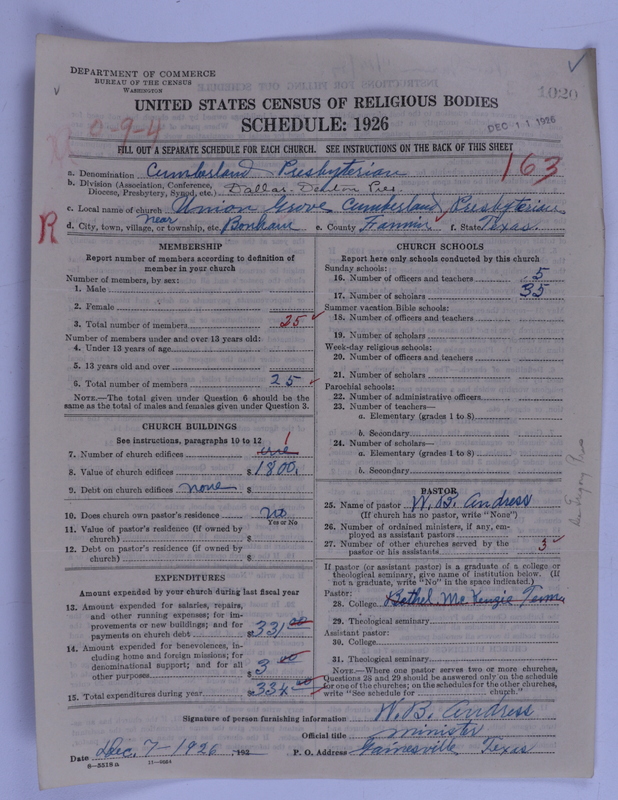 DEPARTMENT OF COMMERCE
BUREAU OF THE CENSUS
WASHINGTON
1920
UNITED STATES CENSUS OF RELIGIOUS BODIES
SCHEDULE: 1926
DEC 11 1926
0-9-4
FILL OUT A SEPARATE SCHEDULE FOR EACH CHURCH. SEE INSTRUCTIONS ON THE BACK OF THIS SHEET
163
a. Denomination Cumberland Presbyterian
b. Division (Association, Conference, Diocese, Presbytery, Synod, etc.) Dallas-Denton Pres.
c. Local name of church Union Grove Cumberland Presbyterian
R
d. City, town, village, or township, etc. near Bonham e. County Fannin f. State Texas.
MEMBERSHIP
Report number of members according to definition of
member in your church
Number of members, by sex:
1. Male
2. Female
3. Total number of members 25
Number of members under and over 13 years old:
4. Under 13 years of age
5. 13 years old and over
6. Total number of members 25
NOTE.—The total given under Question 6 should be the
same as the total of males and females given under Question 3.
CHURCH BUILDINGS
See instructions, paragraphs 10 to 12
7. Number of church edifices one 1
8. Value of church edifices $ 1800.
9. Debt on church edifices none $
10. Does church own pastor's residence? No
Yes or No
11. Value of pastor's residence (if owned by
church) $
12. Debt on pastor's residence (if owned by
church) $
EXPENDITURES
Amount expended by your church during last fiscal year
13. Amount expended for salaries, repairs,
and other running expenses; for im-
provements or new buildings; and for
payments on church debt $ 331 00
14. Amount expended for benevolences, in-
cluding home and foreign missions; for
denominational support; and for all
other purposes $ 3 00
15. Total expenditures during year $ 334 00
CHURCH SCHOOLS
Report here only schools conducted by this church
Sunday schools:
16. Number of officers and teachers 5
17. Number of scholars 35
Summer vacation Bible schools:
18. Number of officers and teachers
19. Number of scholars
Week-day religious schools:
20. Number of officers and teachers
21. Number of scholars
Parochial schools:
22. Number of administrative officers
23. Number of teachers—
a. Elementary (grades 1 to 8)
b. Secondary
24. Number of scholars—
a. Elementary (grades 1 to 8)
b. Secondary
PASTOR
25. Name of pastor W. B. Andress
(If church has no pastor, write "None")
26. Number of ordained ministers, if any, em-
ployed as assistant pastors
27. Number of other churches served by the
pastor or his assistants 3
If pastor (or assistant pastor) is a graduate of a college or
theological seminary, give name of institution below. (If
not a graduate, write "No" in the space indicated.)
Pastor:
28. College Bethel McKenzie Tenn
29. Theological seminary
Assistant pastor:
30. College
31. Theological seminary
NOTE.—Where one pastor serves two or more churches,
Questions 28 and 29 should be answered only on the schedule
for one of the churches; on the schedules for the other churches,
write "See schedule for church."
Signature of person furnishing information W. B. Andress
Official title minister
Date Dec. 7-1926, 192 P. O. Address Gainesville Texas
8-5518 a 11-9564